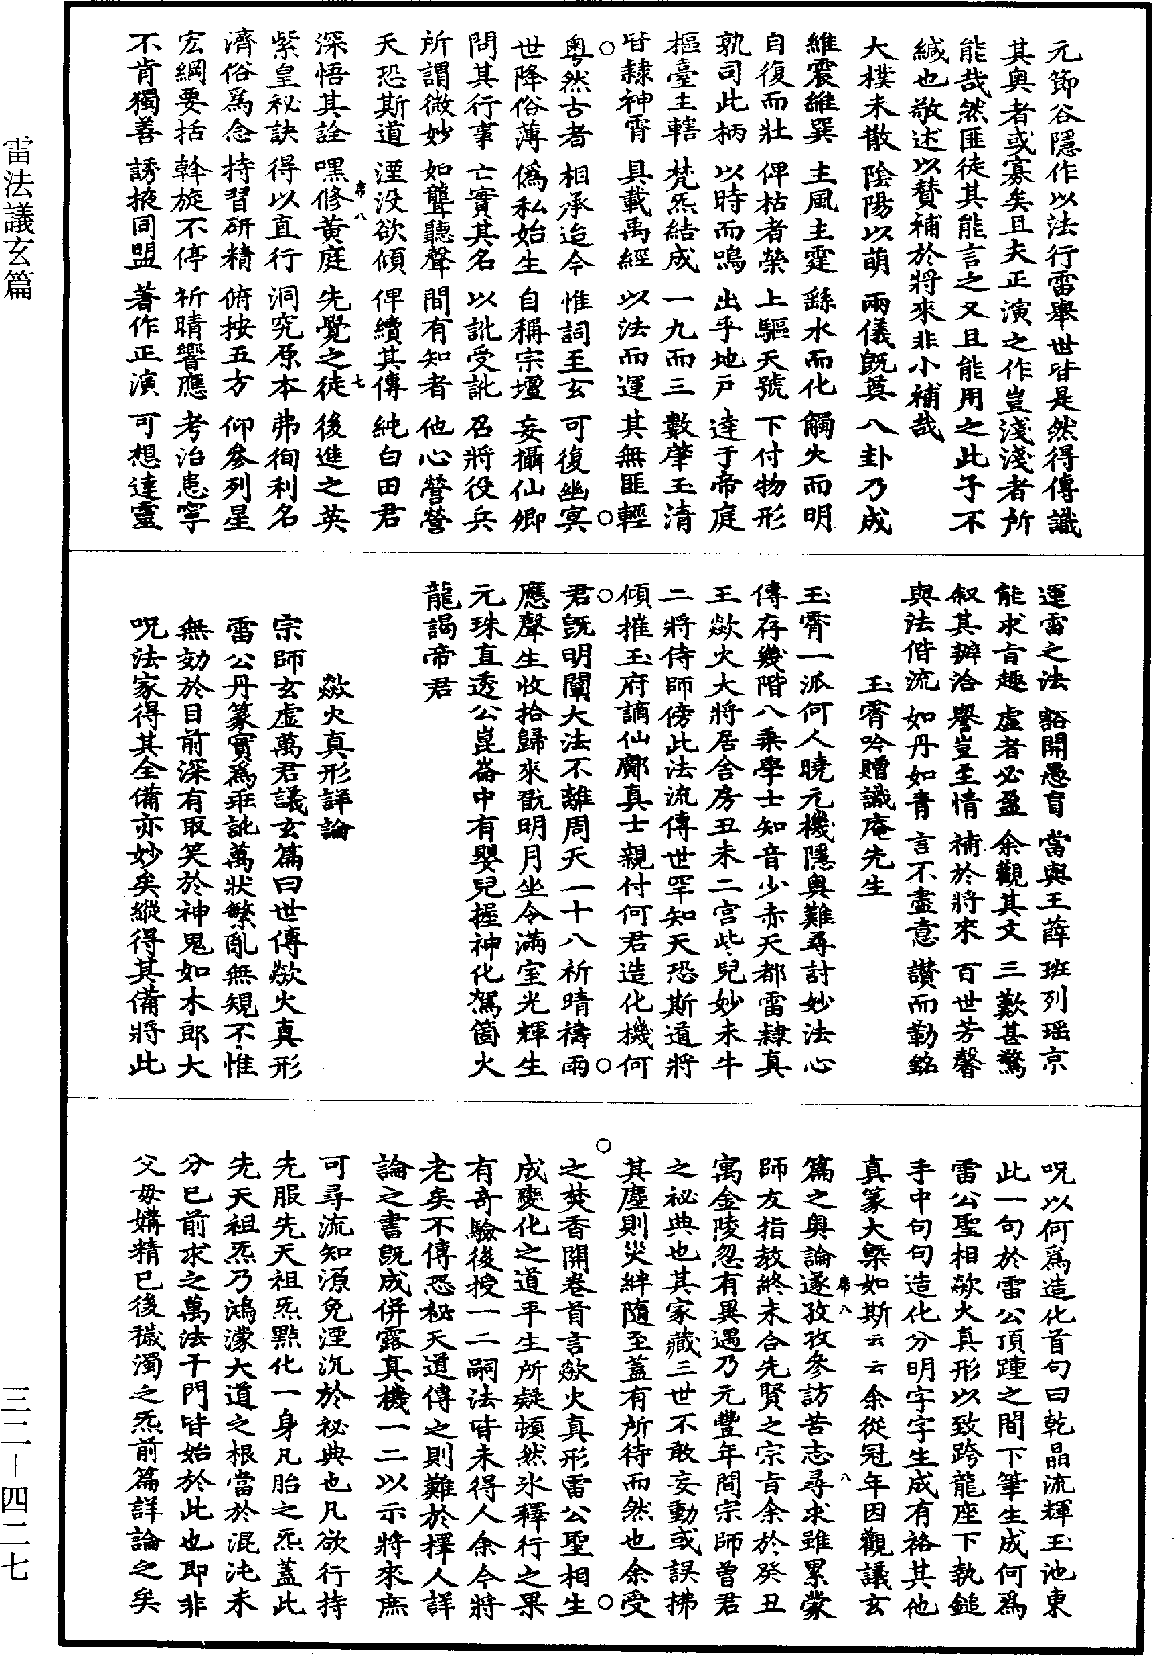 元節谷隱作以法行雷舉世皆是然得傳識
其奧者或寡矣且夫正演之作豈淺淺者所
能哉然匪徒其能言之又且能用之此予不
緘也敬述以贊補於將來非小補哉
大樸未散 陰陽以萌 兩儀旣奠 八卦乃成
維震維巽 主風主霆 繇水而化 觸火而明
自復而壯 俾枯者榮 上驅天號 下付物形
孰司此柄 以時而鳴 出乎地戶 達于帝庭
樞臺主轄 梵炁結成 一九而三 數肇玉清
皆隸神霄 具載禹經 以法而運 其無匪輕
粵然古者 相承迄今 惟詞至玄 可復幽冥
世降俗薄 僞私始生 自稱宗壇 妄攝仙卿
問其行事 亡實其名 以訛受訛 召將役兵
所謂微妙 如聾聽聲 間有知者 他心營營
天恐斯道 湮没欲傾 俾續其傳 純白田君
席八 七
深悟其詮 嘿修黄庭 先覺之徒 後進之英
紫皇祕訣 得以直行 洞究原本 弗徇利名
濟俗爲念 持習研精 俯按五方 仰參列星
宏綱要括 斡旋不停 祈晴響應 考治患寧
不肯獨善 誘掖同盟 著作正演 可想達靈
運雷之法 豁開愚盲 當與王薛 班列瑶京
能求旨趣 虛者必盈 余觀其文 三歎甚驚
叙其辨洽 譽豈至情 補於將來 百世芳馨
與法偕流 如丹如青 言不盡意 讚而勒銘
玉霄吟贈識庵先生
玉霄一派何人曉元機隱奧難尋討妙法心
傳存幾階八乘學士知音少赤天都雷隸真
王欻火大將居舍房丑未二宫些兒妙未牛
二將侍師傍此法流傳世罕知天恐斯道將
傾摧玉府謫仙鄺真士親付何君造化機何
君旣明闡大法不離周天一十八祈晴禱雨
應聲生收拾歸來翫明月坐令滿室光輝生
元珠直透公崑崙中有嬰兒握神化駕箇火
龍謁帝君
欻火真形詳論
宗師玄虛萬君議玄篇曰世傳欻火真形
雷公丹篆實爲乖訛萬狀繁亂無規不惟
無効於目前深有取笑於神鬼如木郎大
呪法家得其全備亦妙矣縱得其備將此
呪以何爲造化首句曰乾晶流輝玉池東
此一句於雷公頂踵之間下筆生成何爲
雷公聖相欻火真形以致跨龍座下執鎚
手中句句造化分明字字生成有袼其他
真篆大槩如斯云云余從冠年因觀議玄
席八 八
篇之奥論遂孜孜參訪苦志尋求雖累蒙
師友指教終未合先賢之宗旨余於癸丑
寓金陵忽有異遇乃元豐年間宗師曾君
之祕典也其家藏三世不敢妄動或誤拂
其塵則災絆隨至蓋有所待而然也余受
之焚香開卷首言欻火真形雷公聖相生
成變化之道平生所疑頓然氷釋行之果
有奇驗後授一二嗣法皆未得人余今將
老矣不傳恐秘天道傳之則難於擇人詳
論之書旣成併露真機一二以示將來庶
可尋流知源免湮沉於祕典也凡欲行持
先服先天祖炁點化一身凡胎之炁蓋此
先天祖炁乃鴻濛大道之根當於混沌未
分已前求之萬法千門皆始於此也即非
父母媾精已後穢濁之炁前篇詳論之矣
雷法議玄篇
三二-四二七